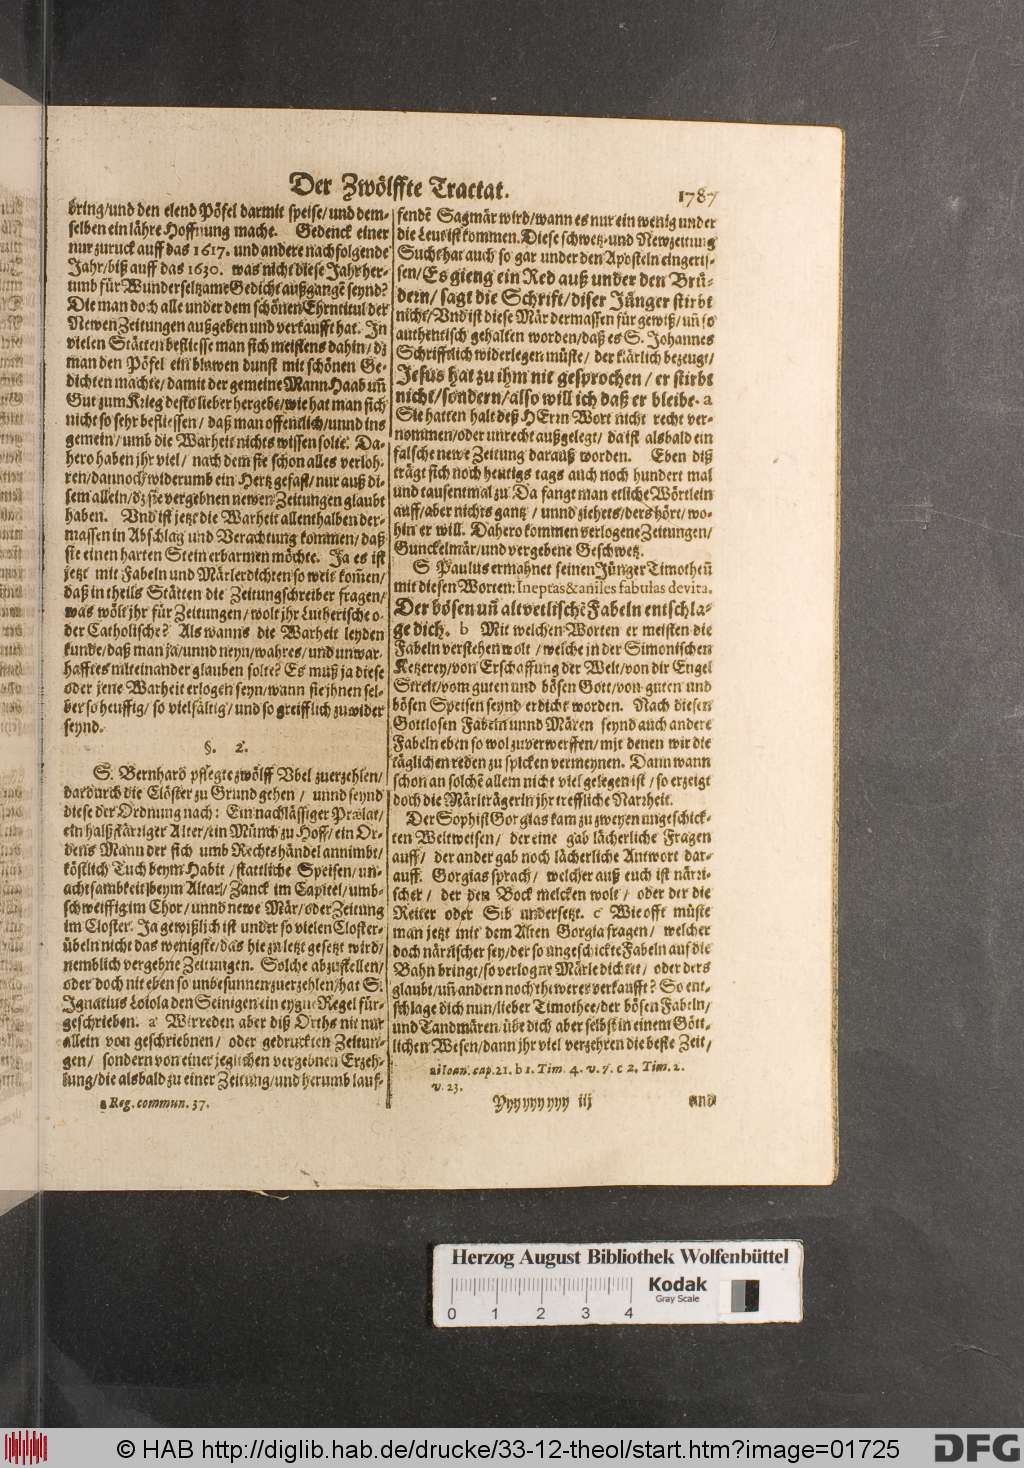 Der Zwölffte Tractat.
1787
bring/und den elend Pöfel darmit speise/und dem-
selben ein lähre Hoffnung mache. Gedenck einer
nur zuruck auff das 1617. und andere nachfolgende
Jahr/biß auff das 1630. was nicht diese Jahr her-
umb für Wunderseltzame Gedicht außgangẽ seynd?
Die man doch alle under dem schönen Ehrntitul der
Newen Zeitungen außgeben und verkaufft hat. In
vielen Stätten beflisse man sich meistens dahin/dz
man den Pöfel ein blawen dunst mit schönen Ge-
dichten machte/damit der gemeine Mann Haab uñ
Gut zum Krieg desto lieber hergebe/wie hat man sich
nicht so sehr beflissen/daß man offentlich/unnd ins
gemein/umb die Warheit nichts wissen solte. Da-
hero haben jhr viel/nach dem sie schon alles verloh-
ren/dannoch widerumb ein Hertz gefast/nur auß di-
sem allein/dz sie vergebnen newen Zeitungen glaubt
haben. Vnd ist jetzt die Warheit allenthalben der-
massen in Abschlag und Verachtung kommen/daß
sie einen harten Stein erbarmen möchte. Ja es ist
jetzt mit Fabeln und Märlerdichten so weit kom̃en/
daß in theils Stätten die Zeitungschreiber fragen/
was wölt jhr für Zeitungen/wolt jhr Lutherische o-
der Catholische? Als wanns die Warheit leyden
kunde/daß man ja/unnd neyn/wahres/und unwar-
hafftes miteinander glauben solte? Es muß ja diese
oder jene Warheit erlogen seyn/wann sie jhnen sel-
ber so heuffig/so vielfältig/und so greifflich zuwider
seynd.
§. 2.
S. Bernhard pflegte zwölff Vbel zuerzehlen/
dardurch die Clöster zu Grund gehen/unnd seynd
diese der Ordnung nach: Ein nachlässiger Prælat/
ein halßstärriger Alter/ein Münch zu Hoff/ein Or-
dens Mann der sich umb Rechtshändel annimbt/
köstlich Tuch beym Habit/stattliche Speisen/un-
achtsambkeit beym Altar/Zanck im Capitel/umb-
schweiffig im Chor/unnd newe Mär/oder Zeitung
im Closter. Ja gewißlich ist under so vielen Closter-
übeln nicht das wenigste/das hie zu letzt gesetzt wird/
nemblich vergebne Zeitungen. Solche abzustellen/
oder doch nit eben so unbesunnen zuerzehlen/hat S.
Ignatius Loiola den Seinigen ein eygne Regel für-
geschrieben. a Wir reden aber diß Orths nit nur
allein von geschriebnen/oder gedruckten Zeitun-
gen/sondern von einer jeglichen vergebnen Erzeh-
lung/die alsbald zu einer Zeitung/und herumb lauf-
a Reg. commun. 37.
fendẽ Sagmär wird/wann es nur ein wenig under
die Leut ist kommen. Diese schwetz-und Newzeitung
Sucht hat auch so gar under den Aposteln eingeris-
sen/Es gieng ein Red auß under den Brü-
dern/sagt die Schrift/diser Jünger stirbt
nicht/Vnd ist diese Mär dermassen für gewiß/uñ so
authentisch gehalten worden/daß es S. Johannes
Schrifftlich widerlegen müste/der klärlich bezeugt/
Jesus hat zu ihm nit gesprochen/er stirbt
nicht/sondern/also will ich daß er bleibe. a
Sie hatten halt deß HErrn Wort nicht recht ver-
nommen/oder unrecht außgelegt/da ist alsbald ein
falsche newe Zeitung darauß worden. Eben diß
trägt sich noch heutigs tags auch noch hundert mal
und tausentmal zu. Da fangt man etliche Wörtlein
auff/aber nichts gantz/unnd ziehets/ders hört/wo-
hin er will. Dahero kommen verlogene Zeitungen/
Gunckelmär/und vergebene Geschwetz.
S Paulus ermahnet seinen Jünger Timotheũ
mit diesen Worten: Ineptas & aniles fabulas devita.
Der bösen uñ altvetlischẽ Fabeln entschla-
ge dich. b Mit welchen Worten er meisten die
Fabeln verstehen wolt/welche in der Simonischen
Ketzerey/von Erschaffung der Welt/von dir Engel
Streit/vom guten und bösen Gott/von guten und
bösen Speisen seynd erdicht worden. Nach diesen
Gottlosen Fabeln unnd Mären seynd auch andere
Fabeln eben so wol zuverwerffen/mit denen wir die
täglichen reden zu spicken vermeynen. Dann wann
schon an solchẽ allem nicht viel gelegen ist/so erzeigt
doch die Märlträgerin jhr treffliche Narzheit.
Der Sophist Gorgias kam zu zweyen ungeschick-
ten Weltweisen/der eine gab lächerliche Fragen
auff/der ander gab noch lächerliche Antwort dar-
auff. Gorgias sprach/welcher auß euch ist närri-
scher/der den Bock melcken wolt/oder der die
Reiter oder Sib undersetzt. c Wie offt müste
man jetzt mit dem Alten Gorgia fragen/welcher
doch närrischer sey/der so ungeschickte Fabeln auf die
Bahn bringt/so verlogne Märle dichtet/oder ders
glaubt/uñ andern noch thewerer verkaufft? So ent-
schlage dich nun/lieber Timothee/der bösen Fabeln/
und Tandmären/übe dich aber selbst in einem Gött-
lichen Wesen/dann jhr viel verzehren die beste Zeit/
a Ioan. cap. 21. b 1. Tim. 4. v. 7. c 2. Tim. 2.
v. 23.
Yyyyyyyy iij
und
Herzog August Bibliothek Wolfenbüttel
Kodak
Gray Scale
0 1 2 3 4
© HAB http://diglib.hab.de/drucke/33-12-theol/start.htm?image=01725
DFG